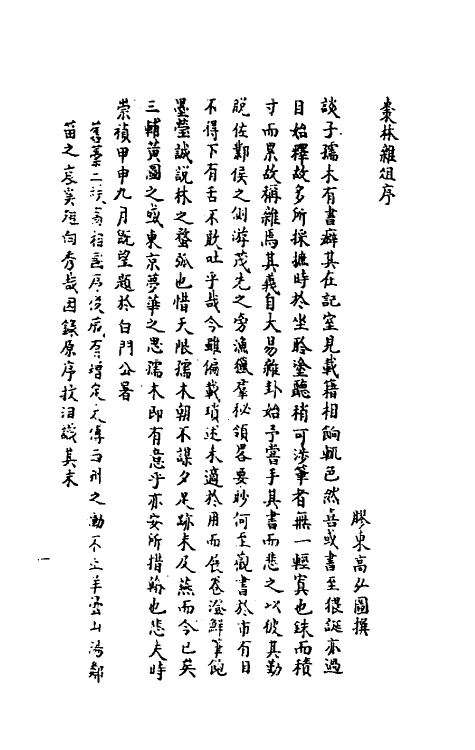 棗林雜俎序
膠東高弘圖撰
談子孺木有書癖其在記室見載籍相餉輒色然喜或書至猥誕亦過
目始釋故多所採摭時於坐聆塗聽稍可涉筆者無一輕寘也銖而積
寸而累故稱雜焉其義自大易雜卦始予嘗手其書而悲之以彼其勤
脫佐鄴侯之側游茂先之旁漁獵羣秘領畧要眇何至觀書於市有目
不得下有舌不敢吐乎哉今雖偏載瑣述未適於用而展卷澄鮮筆飽
墨瑩誠說林之蝥弧也惜天限孺木朝不謀夕足跡未及燕而今已矣
三輔黃圖之或東京夢華之思孺木即有意乎亦安所措翰也悲夫時
崇禎甲申九月既望題於白門公署
舊藁二族高相國序後屢有增定文傳而州之勳不
笛之哀奚殊向秀哉因錄原序抆泪識其末
一